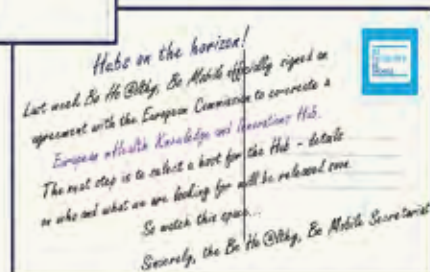 Hubs on the horizon!
Last week Be He@lthy, Be Mobile officially signed an
agreement with the European Commission to co-create a
European mHealth Knowledge and Innovations Hub.
The next step is to select a host for the Hub - details
on who and what we are looking for will be released soon.
So watch this space...
Sincerely, the Be He@lthy, Be Mobile Secretariat